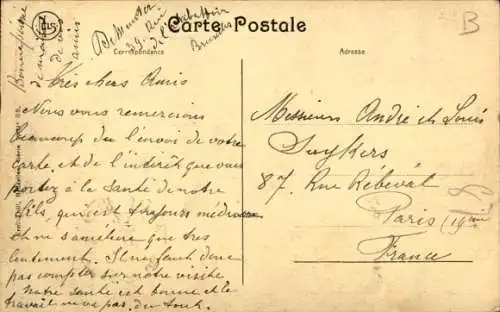 Carte Postale
Correspondance
Adresse
B
De Munster
35 Rue
de l'
Bruxelles
Bonne
de vos
amis
Très chers Amis
Nous vous remercions
beaucoup du l'envoi de votre
carte et de l'intérêt que vous
portez à la santé de notre
fils, qui est toujours médiocre
et ne s'améliore que très
lentement. Il ne faut donc
pas compter sur notre visite
Notre santé est bonne et le
travail ne va pas du tout.
Messieurs André et Louis
Suykers
87. Rue Rébeval
Paris (19me
France